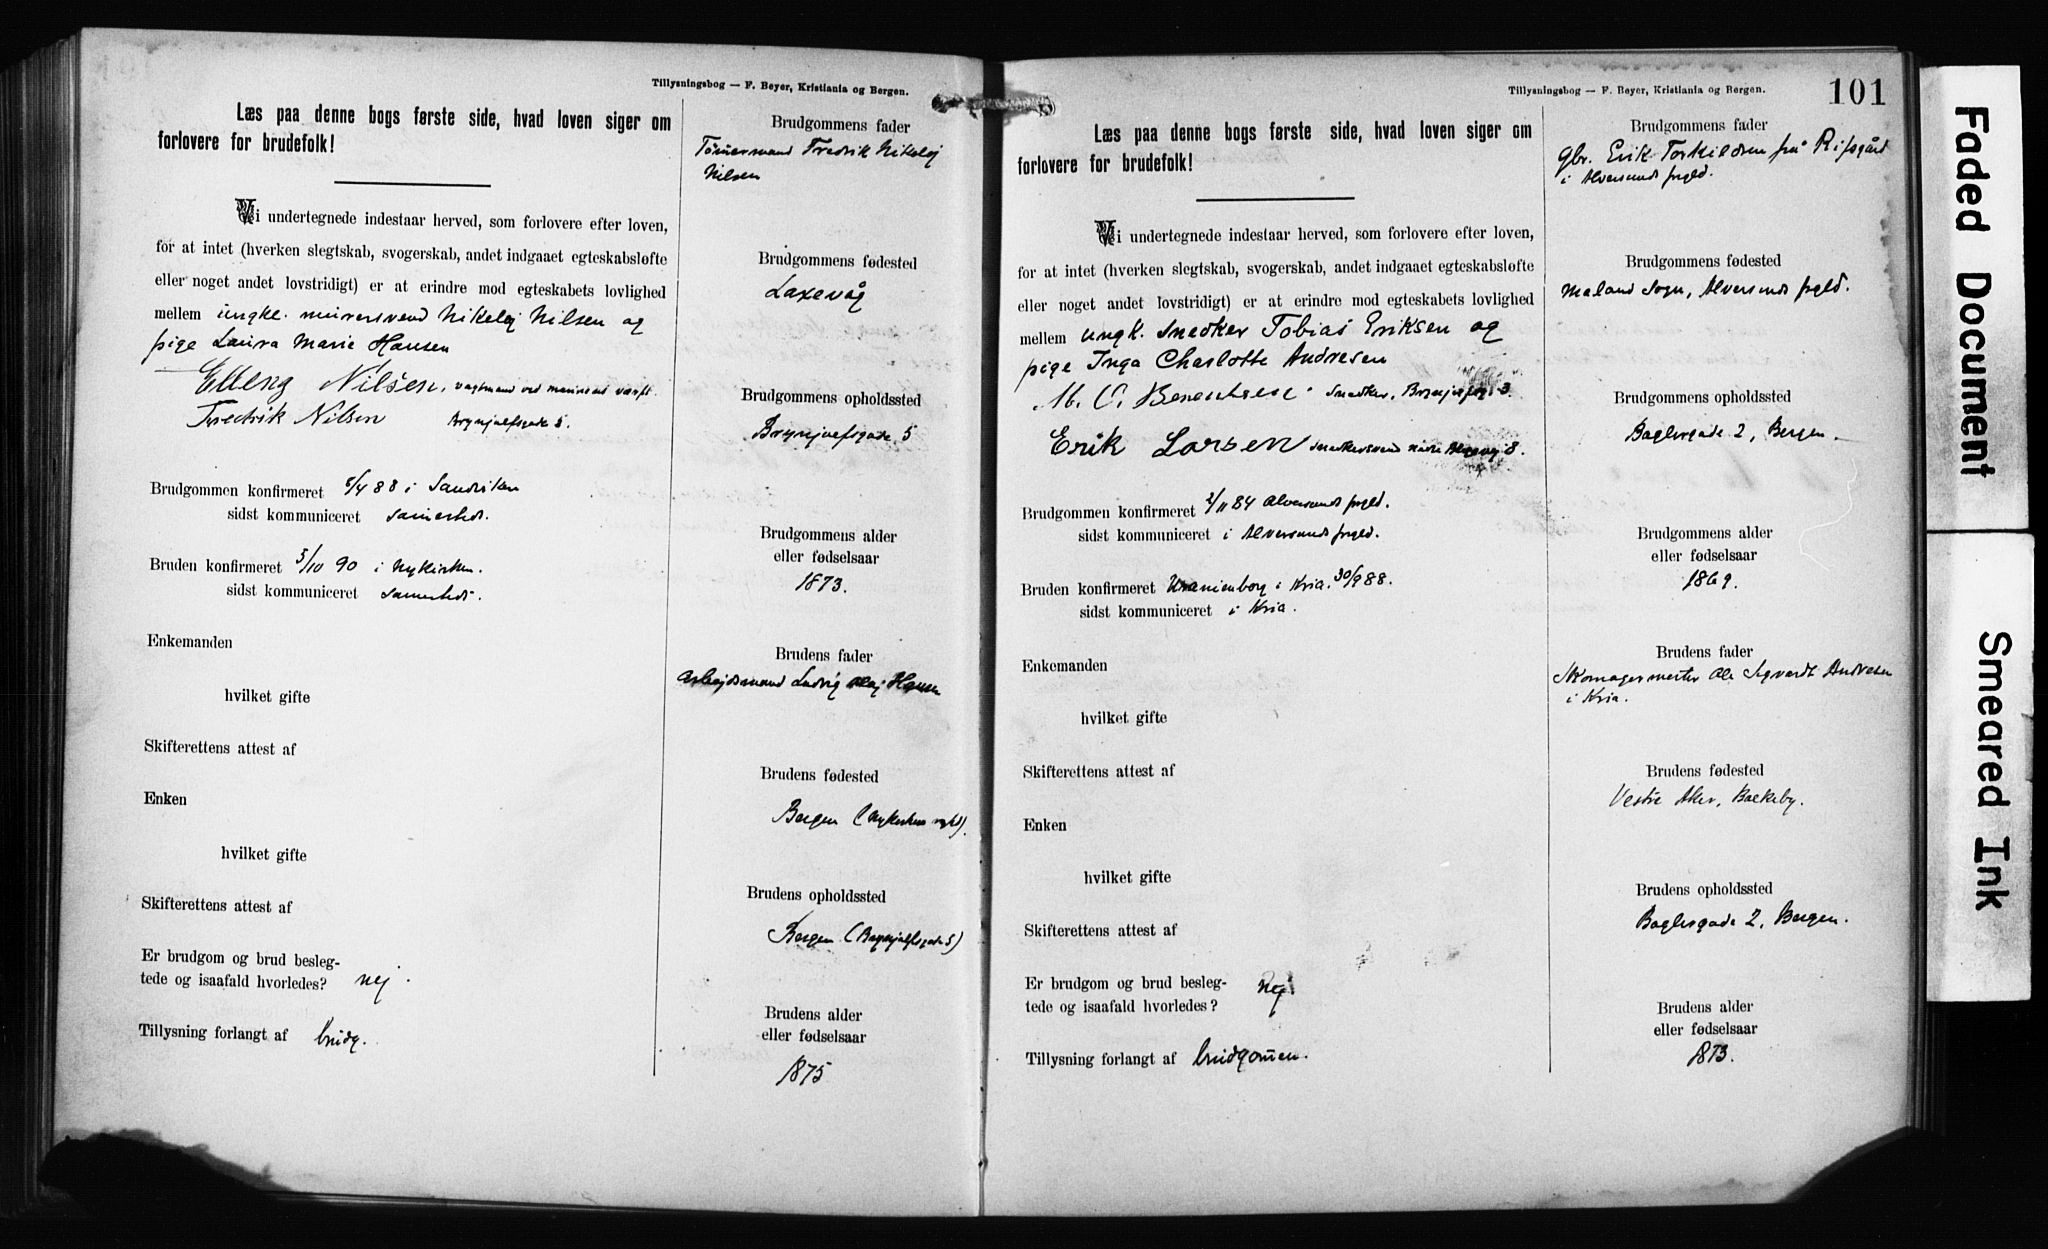 Tillysningsbog — F. Beyer, Kristiania og Bergen.
Læs paa denne bogs første side, hvad loven siger om
forlovere for brudefolk!
Vi undertegnede indestaar herved, som forlovere efter loven,
for at intet (hverken slegtskab, svogerskab, andet indgaaet egteskabsløfte
eller noget andet lovstridigt) er at erindre mod egteskabets lovlighed
mellem ungk. murersvend Nikolaj Nilsen og
pige Laura Marie Hansen
Elleng Nilsen, vagtmand ved marinens værft.
Fredrik Nilsen Brynjulfsgade 5.
Brudgommen konfirmeret 8/4 88 i Sandviken
sidst kommuniceret sammesteds.
Bruden konfirmeret 5/10 90 i Nykirken.
sidst kommuniceret sammesteds.
Enkemanden
hvilket gifte
Skifterettens attest af
Enken
hvilket gifte
Skifterettens attest af
Er brudgom og brud besleg-
tede og isaafald hvorledes? nej.
Tillysning forlangt af brudg.
Brudgommens fader
Tømmermand Fredrik Nikolaj
Nilsen
Brudgommens fødested
Laxevåg
Brudgommens opholdssted
Brynjulfsgade 5
Brudgommens alder
eller fødselsaar
1873.
Brudens fader
Arbejdsmand Ludvig Olaj Hansen
Brudens fødested
Bergen (Nykirkens
Brudens opholdssted
Bergen (Brynjulfsgade 5)
Brudens alder
eller fødselsaar
1875
Tillysningsbog — F. Beyer, Kristiania og Bergen.
101
Læs paa denne bogs første side, hvad loven siger om
forlovere for brudefolk!
Vi undertegnede indestaar herved, som forlovere efter loven,
for at intet (hverken slegtskab, svogerskab, andet indgaaet egteskabsløfte
eller noget andet lovstridigt) er at erindre mod egteskabets lovlighed
mellem ungk. Snedker Tobias Eriksen og
pige Inga Charlotte Andresen
M. O. Snedker, 3.
Erik Larsen Snedkersvend 8.
Brudgommen konfirmeret 2/11 84 Alversunds prgld.
sidst kommuniceret i Alversunds prgld.
Bruden konfirmeret Uranienborg i Kria. 30/9 88.
sidst kommuniceret i Kria.
Enkemanden
hvilket gifte
Skifterettens attest af
Enken
hvilket gifte
Skifterettens attest af
Er brudgom og brud besleg-
tede og isaafald hvorledes? Nej.
Tillysning forlangt af brudgommen.
Brudgommens fader
Gbr. Erik Torkildsen på Rifsgård
i Alversunds prgld.
Brudgommens fødested
Meland Sogn, Alversunds prgld.
Brudgommens opholdssted
Baglergade 2, Bergen.
Brudgommens alder
eller fødselsaar
1869.
Brudens fader
Skomagermester Ole Sigvardt Andresen
i Kria.
Brudens fødested
Vestre Aker, Bakkeby.
Brudens opholdssted
Baglergade 2, Bergen.
Brudens alder
eller fødselsaar
1873.
Faded Document
Smeared Ink